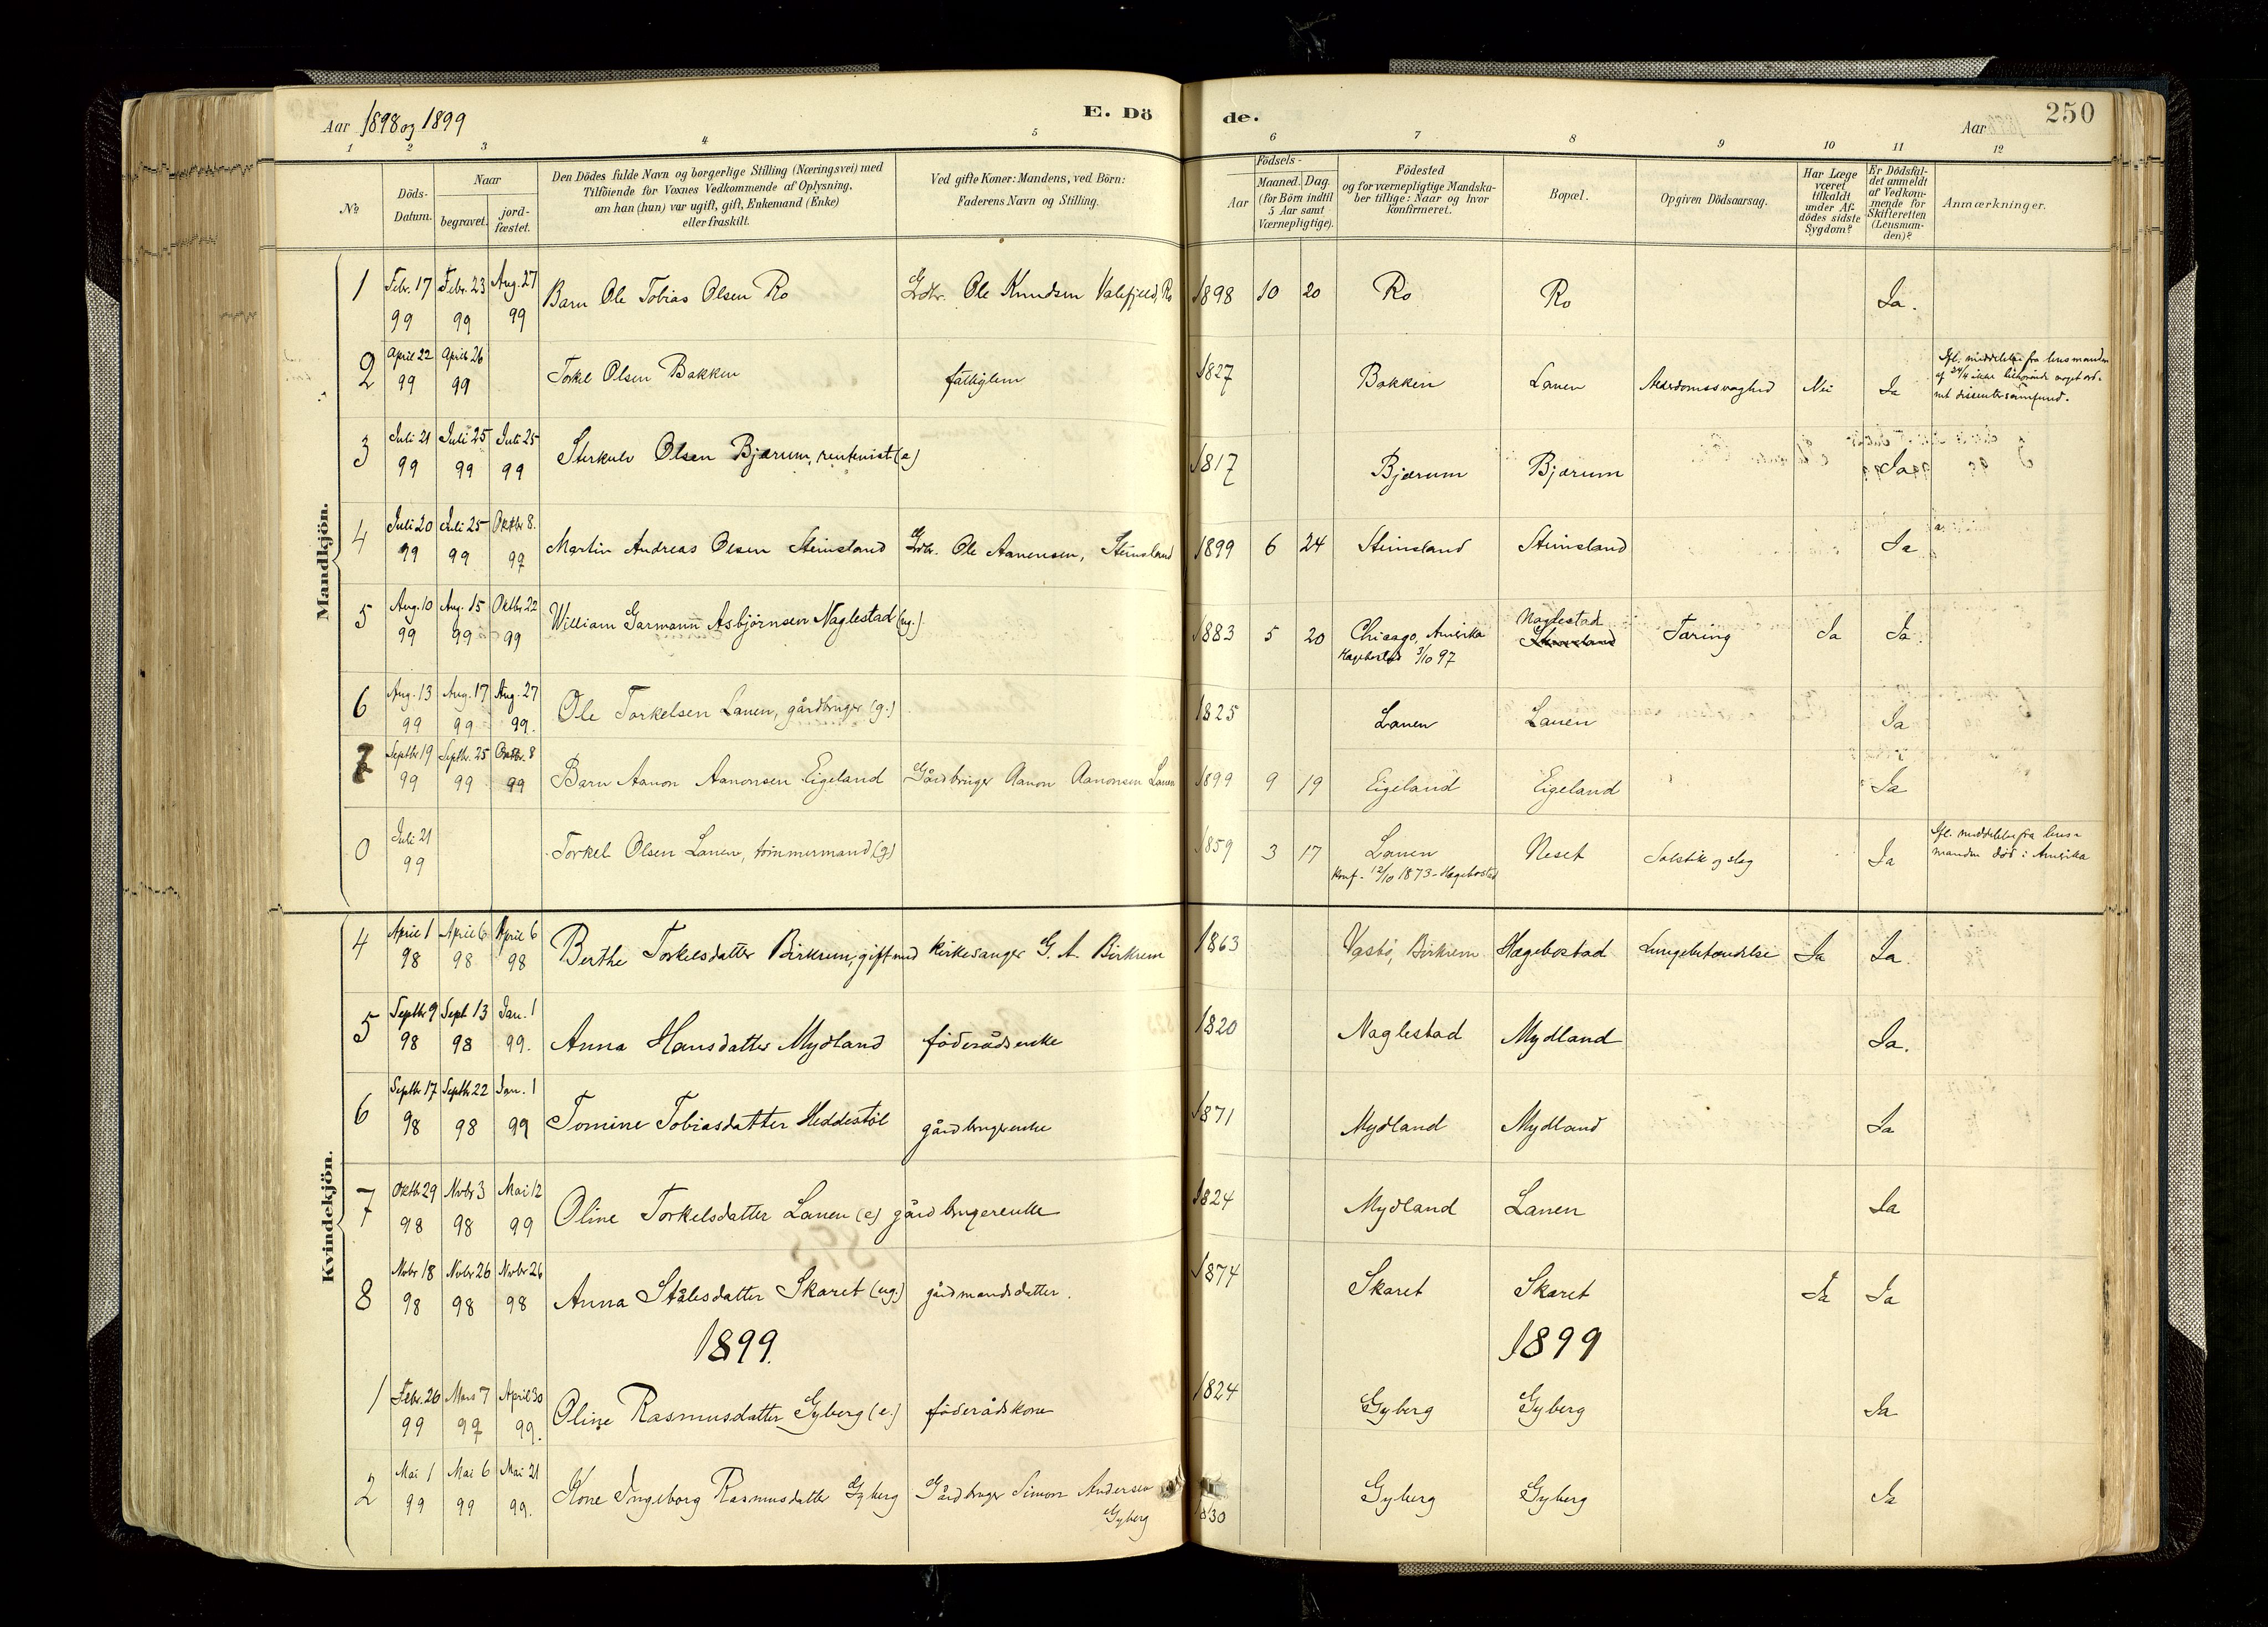 Aar 1898 og 1899
E. Dö de.
Aar
250
1 2 3 4 5 6 7 8 9 10 11 12
№
Döds-
Datum.
Naar
begravet.
jord-
fæstet.
Den Dödes fulde Navn og borgerlige Stilling (Næringsvei) med
Tilföiende for Voxnes Vedkommende af Oplysning,
om han (hun) var ugift, gift, Enkemand (Enke)
eller fraskilt.
Ved gifte Koner: Mandens, ved Börn:
Faderens Navn og Stilling.
Födsels-
Aar
Maaned. Dag.
(for Börn indtil
5 Aar samt
Værnepligtige).
Födested
og for værnepligtige Mandska-
ber tillige: Naar og hvor
konfirmeret.
Bopæl.
Opgiven Dödsaarsag.
Har Læge
været
tilkaldt
under Af-
dödes sidste
Sygdom?
Er Dödsfal-
det anmeldt
af Vedkom-
mende for
Skifteretten
(Lensman-
den)?
Anmærkninger.
Mandkjön.
1 Febr. 17 99 Febr. 23 99 Aug. 27 99 Barn Ole Tobias Olsen Ro Grdbr. Ole Knudsen Valefjeld, Ro 1898 10 20 Ro Ro Ja.
2 April 22 99 April 26 99 Torkel Olsen Bakken fattiglem 1827 Bakken Lauen Alderdomssvaghed Nei Ja Ifl. meddelelse fra lensmanden
af 24/4 ikke tilhørende noget ord-
net dissentersamfund.
3 Juli 21 99 Juli 25 99 Juli 25 99 Sterkulv Olsen Bjærum, rentenist (e) 1817 Bjærum Bjærum Ja
4 Juli 20 99 Juli 25 99 Oktbr 8. 99 Martin Andreas Olsen Steinsland Grdbr. Ole Aanensen, Steinsland 1899 6 24 Steinsland Steinsland Ja
5 Aug. 10 99 Aug. 15 99 Oktbr 22 99 William Garmann Asbjørnsen Naglestad (ug.) 1883 5 20 Chicago, Amerika
Hægebostad 3/10 97 Naglestad Tæring Ja Ja.
6 Aug. 13 99 Aug. 17 99 Aug. 27 99. Ole Torkelsen Lauen, gårdbruger (g.) 1825 Lauen Lauen Ja
7 Septbr 19 99 Septbr. 25 99 Oktbr. 8 99 Barn Aanon Aanonsen Eigeland Gårdbruger Aanon Aanonsen Lauen 1899 9 19 Eigeland Eigeland Ja
0 Juli 21 99 Torkel Olsen Lauen, tømmermand (g) 1859 3 17 Lauen
Konf. 12/10 1873 - Hægebostad Neset Solstik og slag Ja Ifl. meddelelse fra lens-
manden død i Amerika
Kvindekjön.
4 April 1 98 April 6 98 April 6 98 Berthe Torkelsdatter Birkrem, gift med kirkesanger G. A. Birkrem 1863 Vasbø, Birkrem Hægebostad Lungebetændelse Ja Ja.
5 Septbr 9 98 Sept 13 98 Jan. 1 99. Anna Hansdatter Mydland føderådsenke 1820 Naglestad Mydland Ja.
6 Septbr 17 98 Septbr 22 98 Jan. 1 99 Tomine Tobiasdatter Heddestøl gårdbrugerenke 1871 Mydland Mydland Ja
7 Oktb 29 98 Nvbr 3 98 Mai 12 99 Oline Torkelsdatter Lauen (e) gårdbrugerenke 1824 Mydland Lauen Ja
8 Nvbr 18 98 Nvbr 26 98 Nvbr 26 98 Anna Stålesdatter Skaret (ug.) gårdmandsdatter. 1874 Skaret Skaret Ja Ja
1899. 1899
1 Febr. 26 99 Mars 7 99 April 30 99. Oline Rasmusdatter Gyberg (e.) føderådskone 1824 Gyberg Gyberg Ja
2 Mai 1 99 Mai 6 99 Mai 21 99. Kone Ingeborg Rasmusdatter Gyberg Gårdbruger Simon Andersen
Gyberg 1830 Gyberg Gyberg Ja